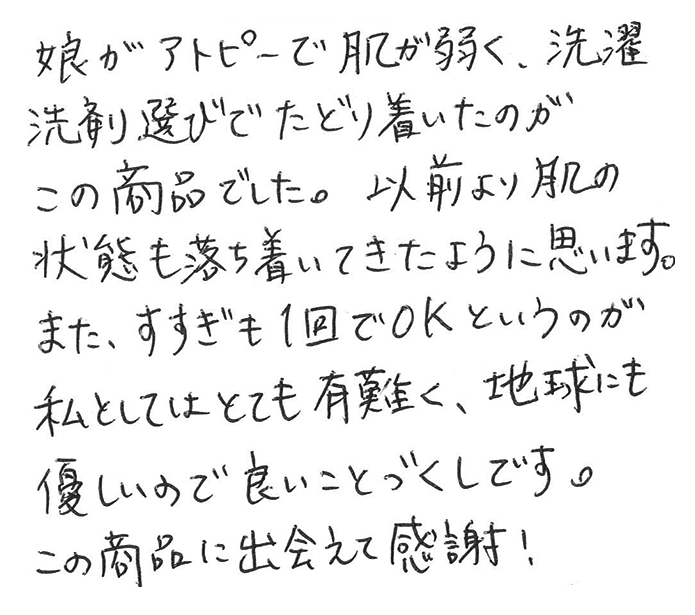 娘がアトピーで肌が弱く、洗濯
洗剤選びでたどり着いたのが
この商品でした。以前より肌の
状態も落ち着いてきたように思います。
また、すすぎも1回でOKというのが
私としてはとても有難く、地球にも
優しいので良いことづくしです。
この商品に出会えて感謝!